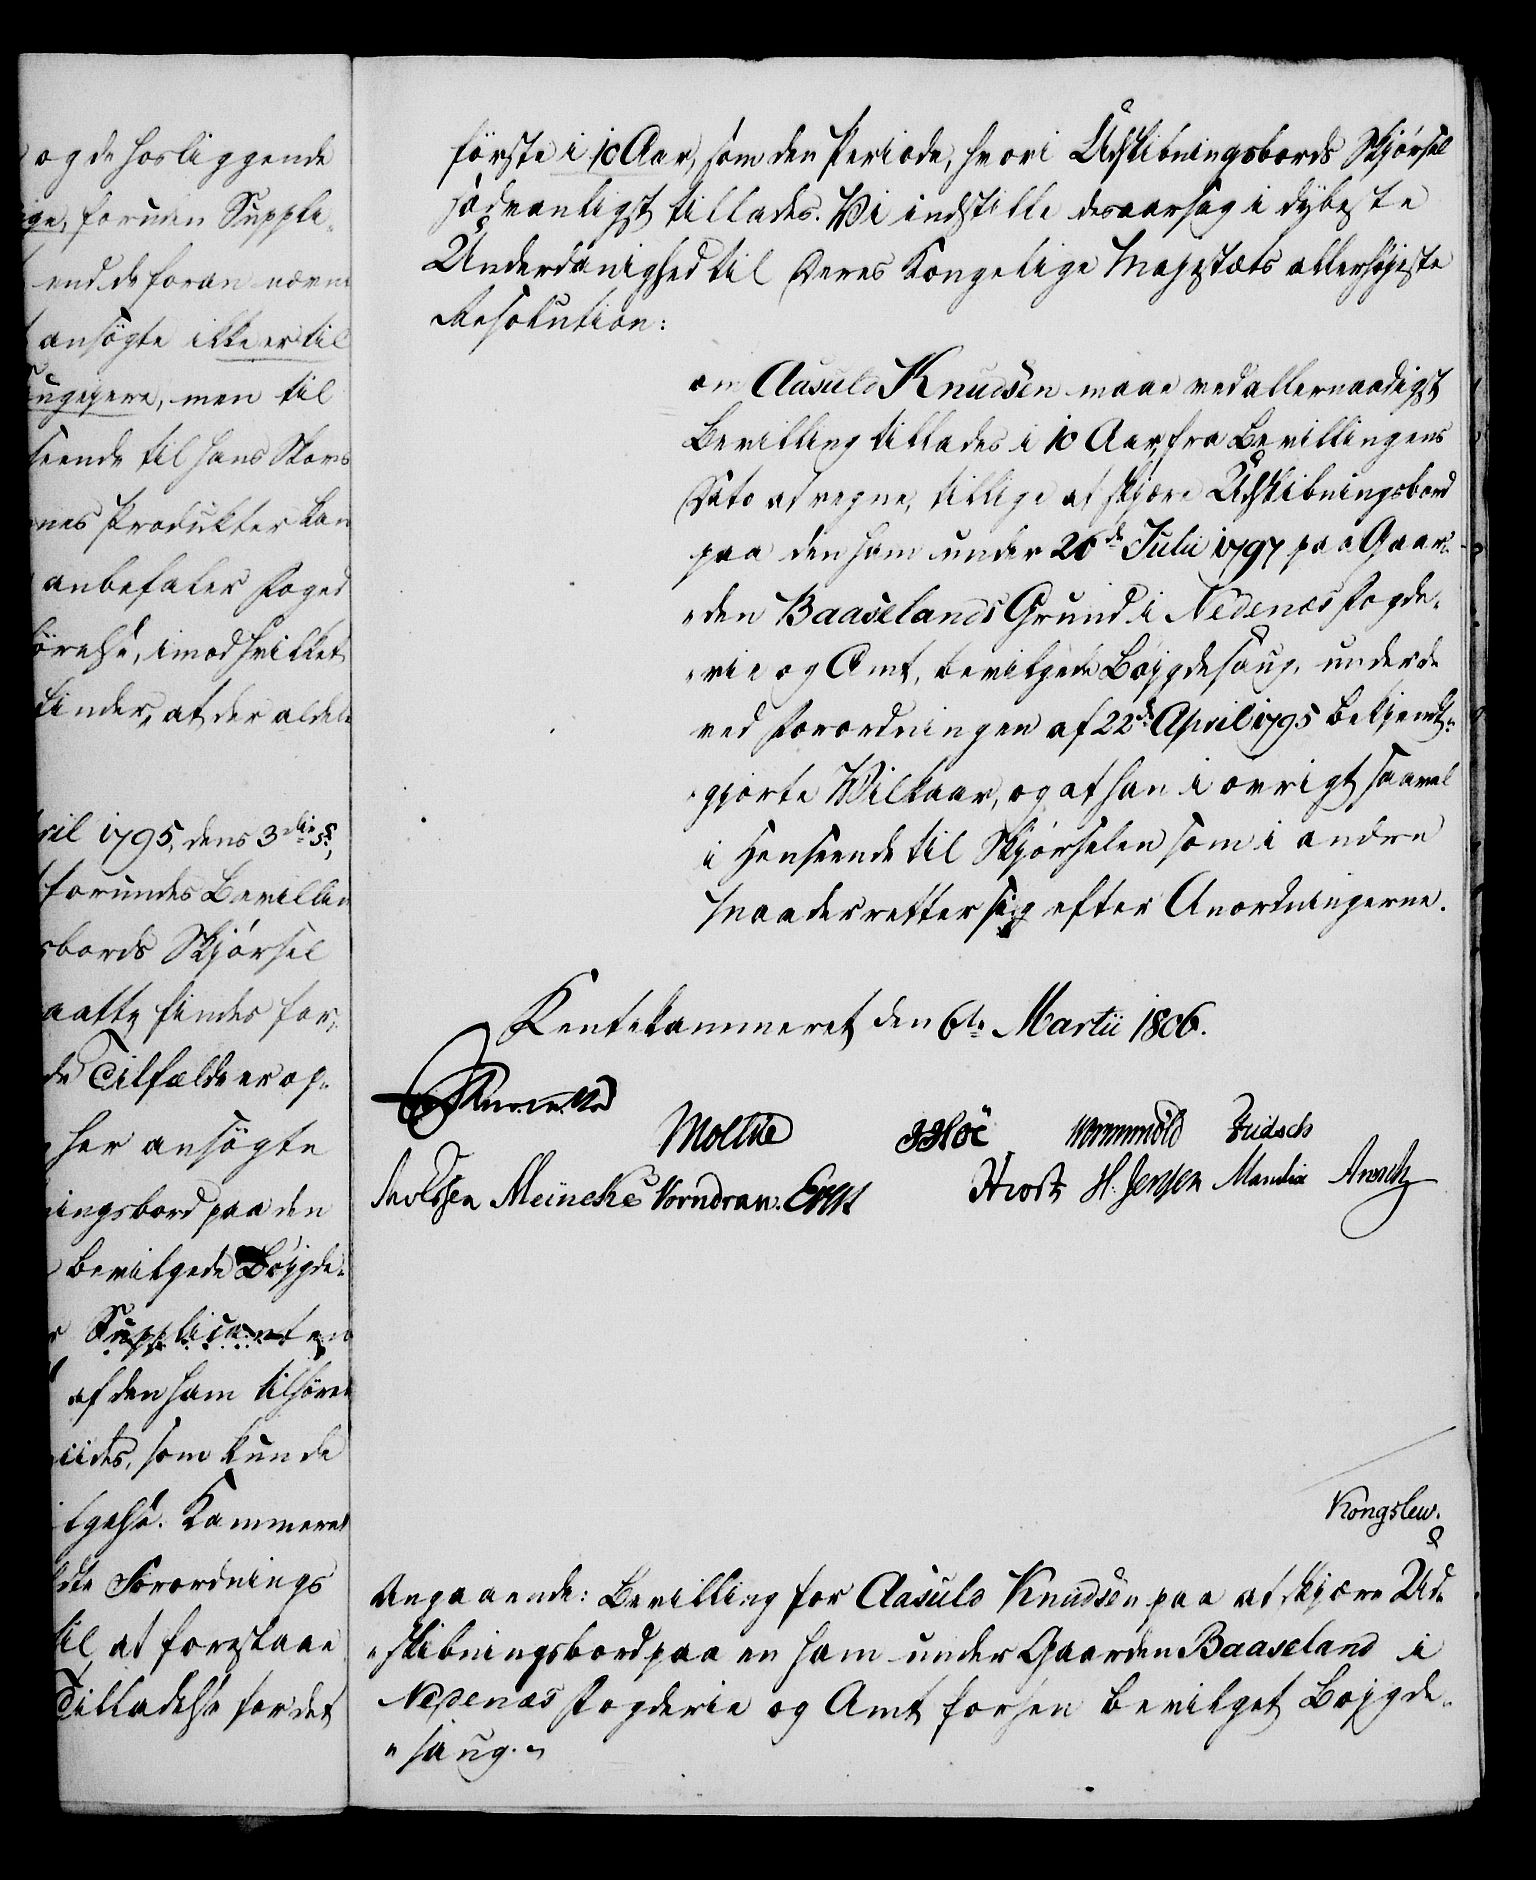 og de hosliggende
ige, foruden Suppli-
end de foran nævn
ansøgte ikke er til
ugeyere, men til
seende til hans Skovs
nes Produkter kan
anbefaler Foged
ørelse, imod hvilket
finder, at der aldel
ril 1795, dens 3die §,
forundes Bevillin
sbords Skjørsel
aatte findes for,
de Tilfælde er op-
her ansøgte
ningsbord paa den
bevilgede Bøygde-
Supplicanten
af den ham tilhøren
iides, som kunde
lgelse. Kammeret
dte Forordnings
til at forestaae
Tilladelse for det
første i 10 Aar, som den Periode, hvori Udskibningsbords Skjørsel
sædvanligst tillades. Vi indstille desaarsag i dybeste
Underdanighed til Deres Kongelige Majestæts allerhøjeste
Resolution:
om Aasuld Knudsen maae ved allernaadigst
Bevilling tillades i 10 Aar, fra Bevillingens
Dato at regne, tillige at skjære Udskibningsbord
paa den ham under 26de Julii 1797 paa Gaar-
den Baaselands Grund i Nedenæs Fogde-
rie og Amt, bevilgede Bøygdesaug, under de
ved Forordningen af 22de April 1795 bekjendt-
gjorte Vilkaar, og at han i øvrigt saavel
i Henseende til Skjørselen som i andre
Maader retter sig efter Anordningerne.
Rentekammeret den 6te Martii 1806.
Moltke Wormskiold Fridsch
Meincke Vorndran. Horst H. Jensen
Kongslew.
Angaaende: Bevilling for Aasuld Knudsen paa at skjære Ud-
skibningsbord paa en ham under Gaarden Baaseland i
Nedenæs Fogderie og Amt forhen bevilget Bøygde-
saug.